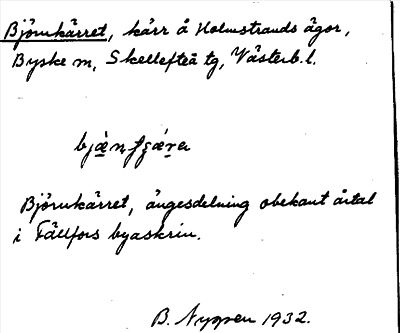 Björnkärret, kärr å Holmstrands ägor,
Byske sn, Skellefteå tg, Västerb. l.
Björnkärret, ängesdelning obekant årtal
i Fällfors byaskrin.
B. Nyppen 1932.